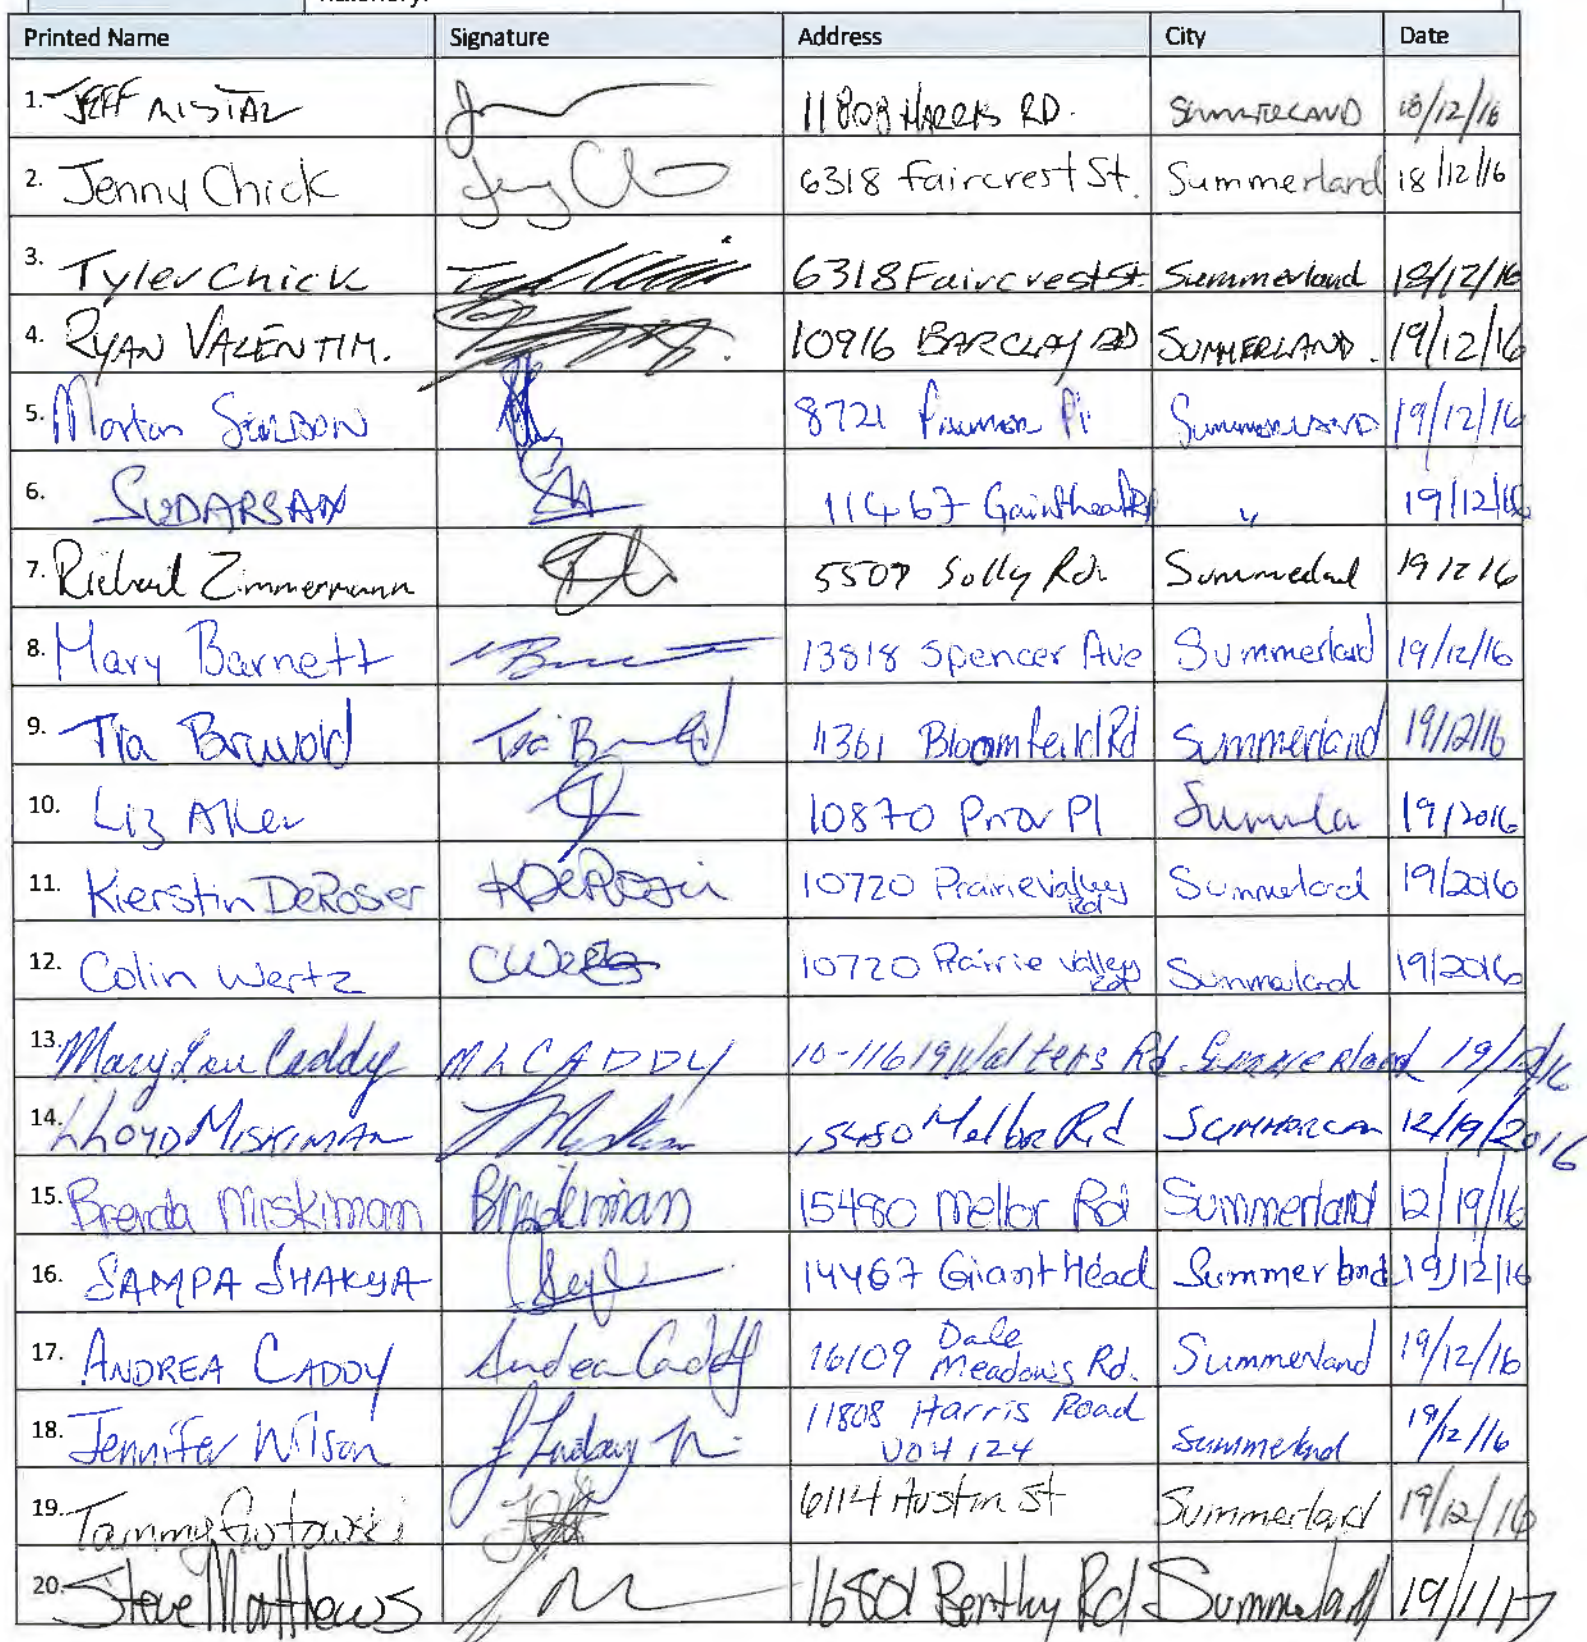 Printed Name Signature Address City Date
1. JEFF MISTAL 11808 HARRIS RD. SUMMERLAND 18/12/16
2. Jenny Chick 6318 Faircrest St. Summerland 18/12/16
3. Tyler Chick 6318 Faircrest St. Summerland 18/12/16
4. RYAN VALENTIM. 10916 BARCLAY RD SUMMERLAND. 19/12/16
5. Morton 8721 Pl SUMMERLAND 19/12/16
6. SUDARSAN 11467 19/12/16
7. Richard Zimmermann 5507 Solly Rd. Summerland 19 12 16
8. Mary Barnett 13818 Spencer Ave Summerland 19/12/16
9. Tia 11361 Bloomfeild Rd Summerland 19/12/16
10. Liz 10870 Prior Pl 19/2016
11. Kierstin DeRosier KDeRosier 10720 Prairie Valley Rd Summerland 19/2016
12. Colin Wertz CWertz 10720 Prairie Valley Rd Summerland 19/2016
13. Mary Lou Caddy M L CADDY 10-11619 Walters Rd. Summerland 19/12/16
14. LLOYD MISKIMAN 15480 Mellor Rd 12/19/2016
15. Brenda Miskiman 15480 Mellor Rd Summerland 12/19/16
16. SAMPA SHAKYA 14467 Giant Head Summerland 19/12/16
17. ANDREA CADDY Andrea Caddy 16109 Dale
Meadows Rd. Summerland 19/12/16
18. Jennifer Wilson 11808 Harris Road
V0H 1Z4 Summerland 19/12/16
19. Tammy 6114 Austin St Summerland 19/12/16
20. Steve Matthews Rd Summerland 19/1/17